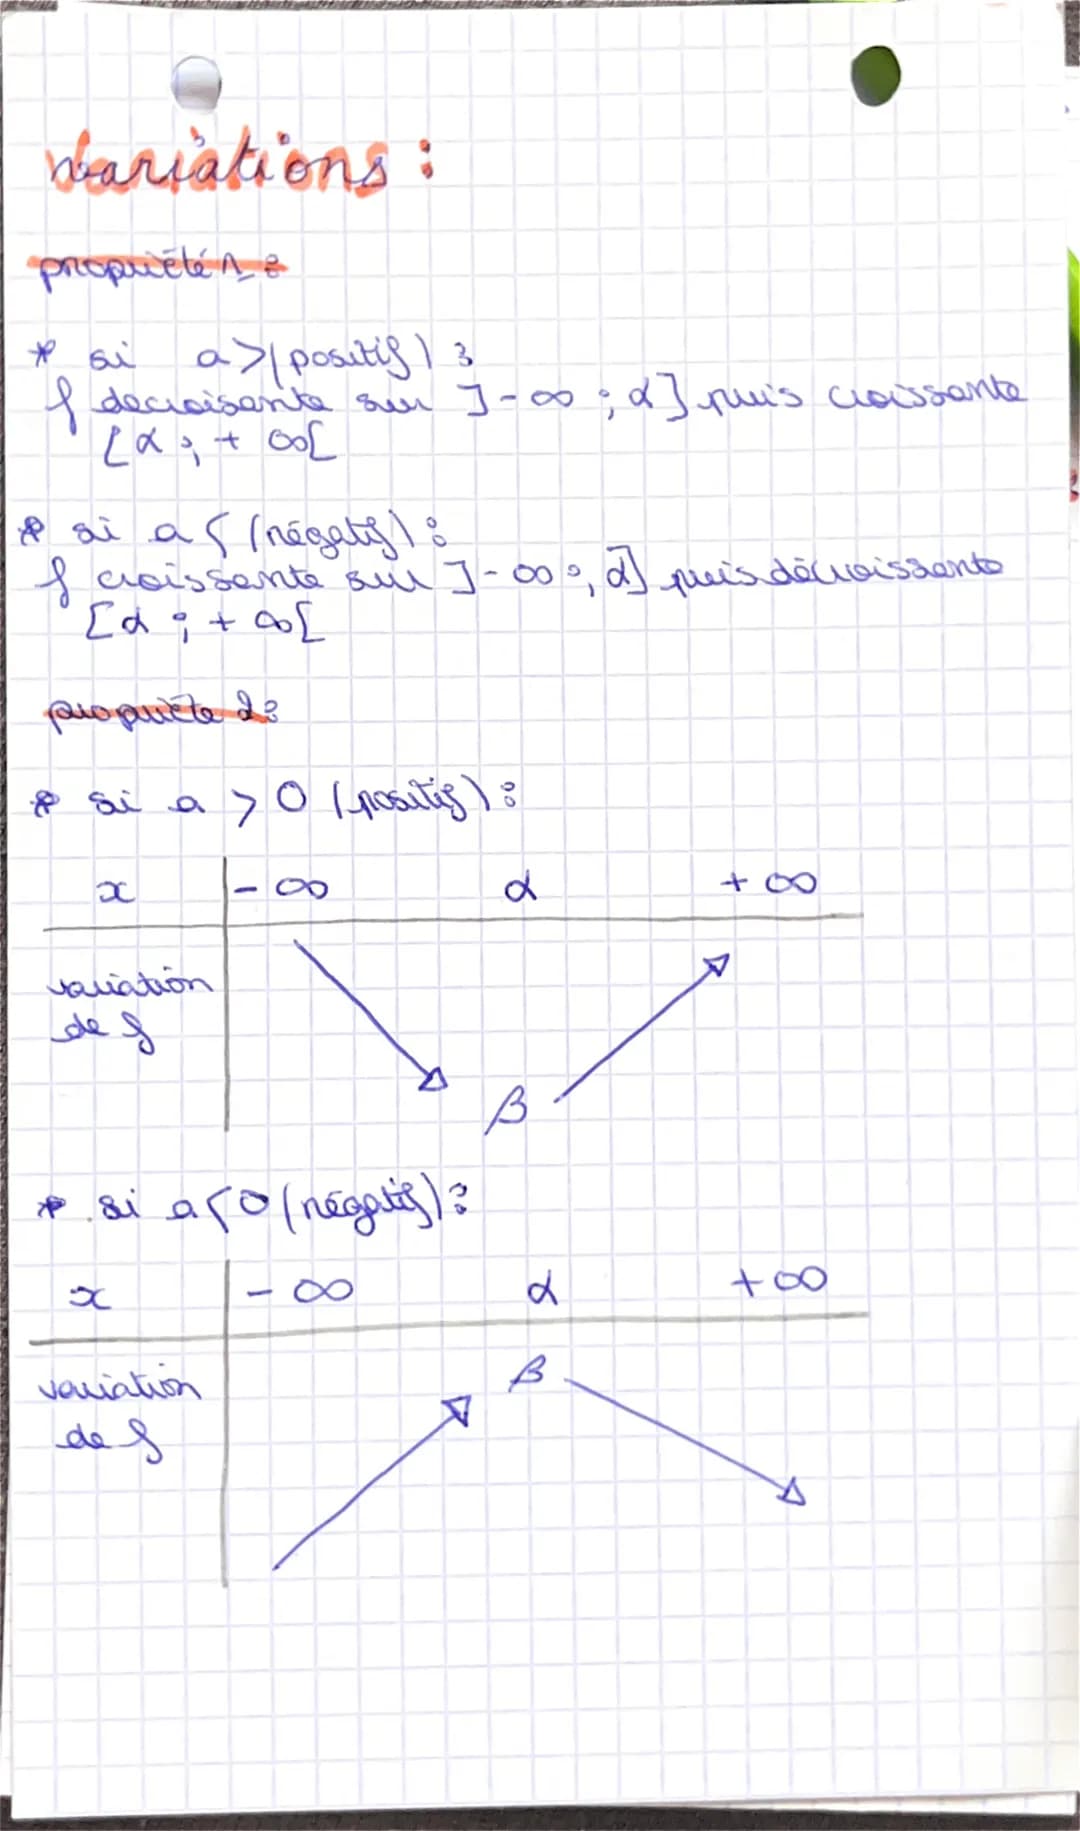 Variations :
propriété 1 :
* si a > (positif) :
f decroisante sur ]-∞ ; α] puis croissante
[α ; + ∞[
* si a < (négatif) :
f croissante sur ]-∞ ; α] puis décroissante
[α ; + ∞[
propriéte 2 :
* si a > 0 (positif) :
x -∞ α +∞
variation
de f
β
* si a < 0 (négatif) :
x -∞ α +∞
variation
de f
β